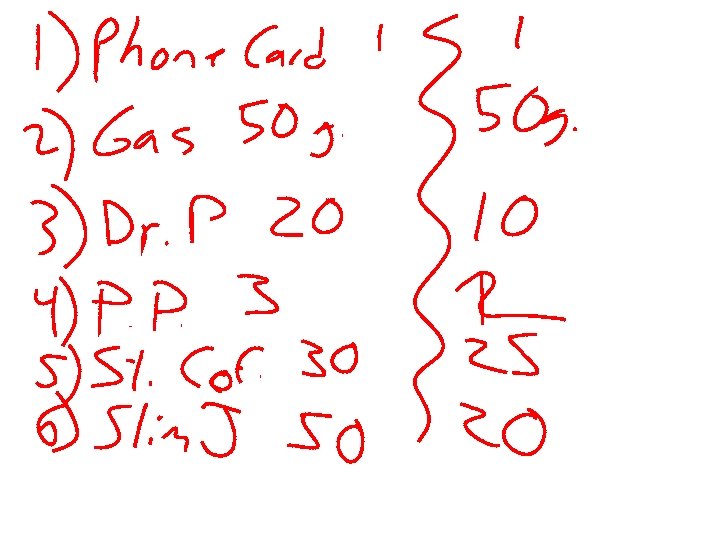 1) Phone Card 1 1
2) Gas 50 g. 50g.
3) Dr. P 20 10
4) P.P. 3
5) St. Cof. 30 25
6) Slim J 50 20